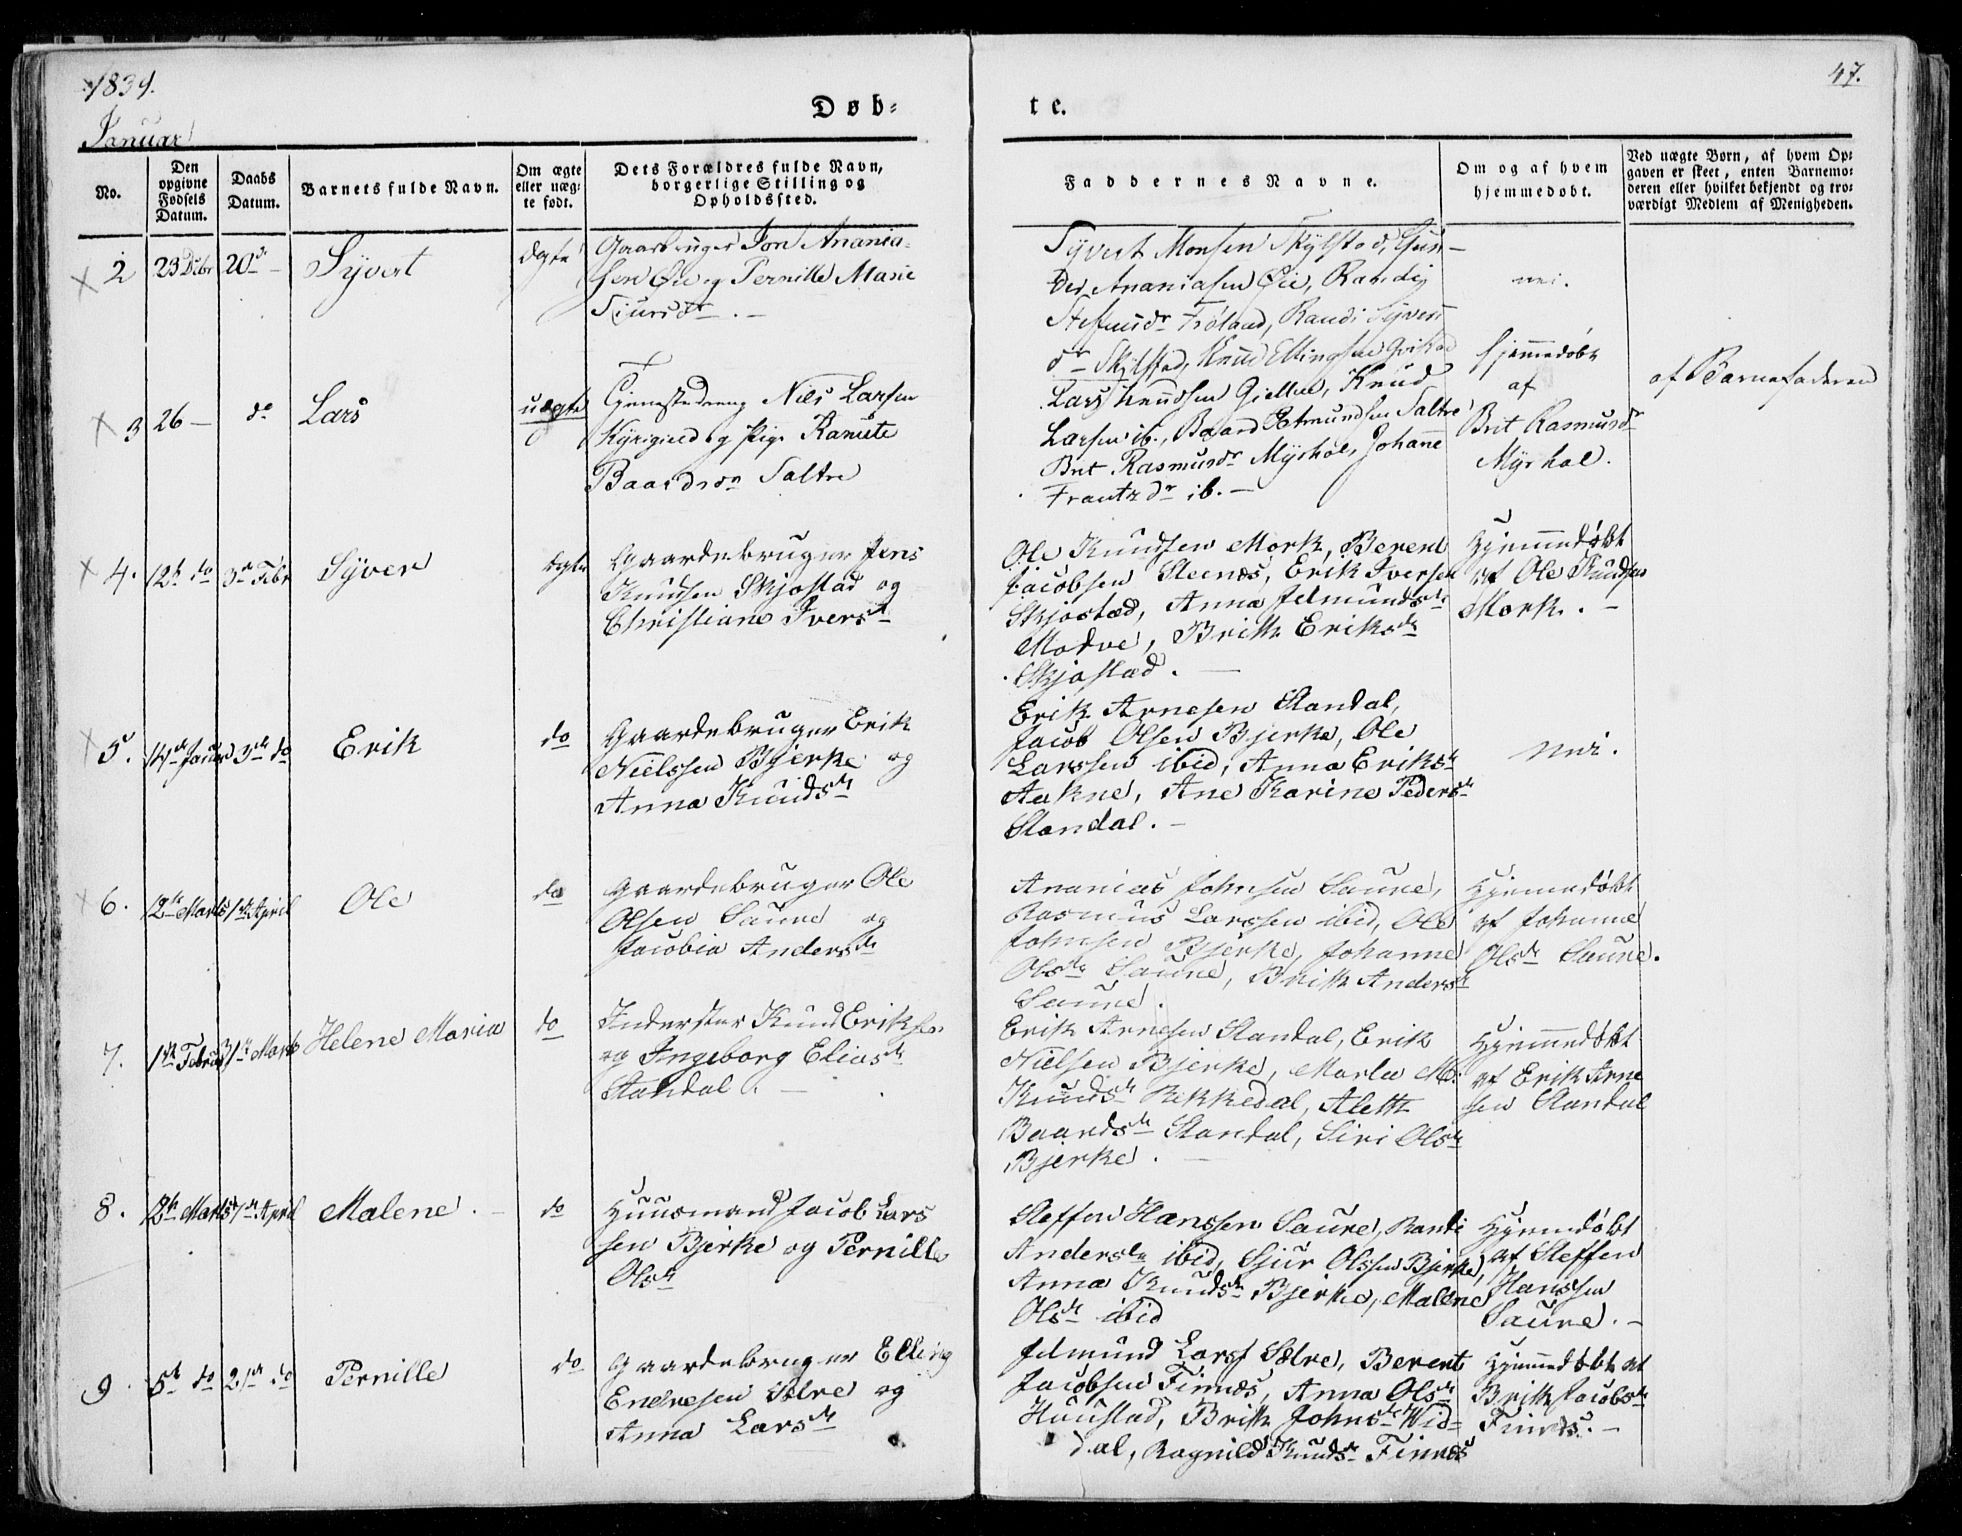 1839.
47.
Januar
Døb-
te.
No.
Den opgivne Fødsels Datum.
Daabs Datum.
Barnets fulde Navn.
Om ægte eller uæg-te født.
Dets Forældres fulde Navn, borgerlige Stilling og Opholdssted.
Faddernes Navne.
Om og af hvem hjemmedøbt.
Ved uægte Børn, af hvem Op-gaven er skeet, enten Barnemo-deren eller hvilket bekjendt og tro-værdigt Medlem af Menigheden.
2
23 Dcbr
20de
Syvert
ægte
Gaardbruger Jon Ananias-
sen Øie og Pernille Marie
Siursdr.
Syvert Monsen Skylstad,
Ananiasen Øie, Randi
Steffensdr Frøland, Randi Syverts
dr Skylstad, Knud Ellingsen
nei.
3
26
do
Lars
uægte
Tjenestedreng Niels Larsen
og Pige
Baardsdr Saltre
Lars Knudsen Gjelleu, Knud
Larsen ib., Baard Edmundsen Saltre
Brit Rasmusdr Myrhol, Johanne
Frantzdr ib.
hjemmedøbt
af
Brit Rasmusdr
Myrhol.
af Barnefaderen
4.
12te do
3die Febr
Syver
ægte
Gaardebruger Jens
Knudsen Skjøstad og
Christiane Iversdr
Ole Knudsen Mork, Berent
Jacobsen Steenæs, Erik Iversen
Skjøstad, Anna Jelmundsdr
Modve, Britte Eriksdr
Skjøstad.
Hjemmedøbt
af Ole Knudsen
Mork.
5.
14de Januar
3die do
Erik
do
Gaardebruger Erik
Nielssen Bjerke og
Anna Knudsdr
Erik Arnesen Standal,
Jacob Olsen Bjerke, Ole
Larssen ibid, Anna Eriksdr
Aakne, Ane Karine Pedersdr
Standal.
Nei.
6.
12te Marts
1ste April
Ole
do
Gaardebruger Ole
Olsen Saure og
Jacobia Andersdr
Ananias Johnsen Saure,
Rasmus Larssen ibid, Ole
Johnsen Bjerke, Johanne
Olsdr Saure, Britte Andersdr
Saure.
Hjemmedøbt
af Johanne
Olsdr Saure.
7.
1ste Februar
31te Marts
Helene Maria
do
Inderster Knud Eriksen
og Ingeborg Eliasdr
Standal.
Erik Arnesen Standal, Erik
Nielsen Bjerke, Marta M.
Knudsdr Rekkedal, Alette
Baardsdr Standal, Siri Olsdr
Bjerke.
Hjemmedøbt
af Erik Arne
sen Standal
8.
12te Marts
1ste April
Malene.
do
Huusmand Jacob Lars
sen Bjerke og Pernille
Olsdr
Steffen Hanssen Saure, Randi
Andersdr ibid, Sjur Olssen Bjerke,
Anna Knudsdr Bjerke, Malene
Olsdr ibid
Hjemmedøbt
af Steffen
Hanssen
Saure.
9
5te do
21de do
Pernille
do
Gaardebruger Elling
Endresen Sætre og
Anna Larsdr
Jelmund Larss Sætre, Berent
Jacobsen Finnæs, Anna Olsdr
Huustad, Britte Johnsdr Vid-
dal, Ragnild Knudsdr Finnæs
Hjemmedøbt af
Britte Jacobsdr
Finnæs.